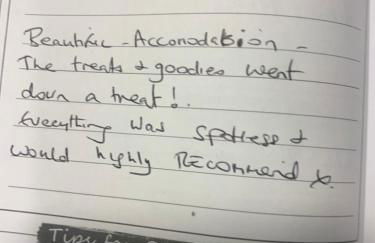 Beautific - Accomodation -
The treats & goodies went
down a treat!.
Everything was spotless &
would highly RECOMMEND x.
Tips